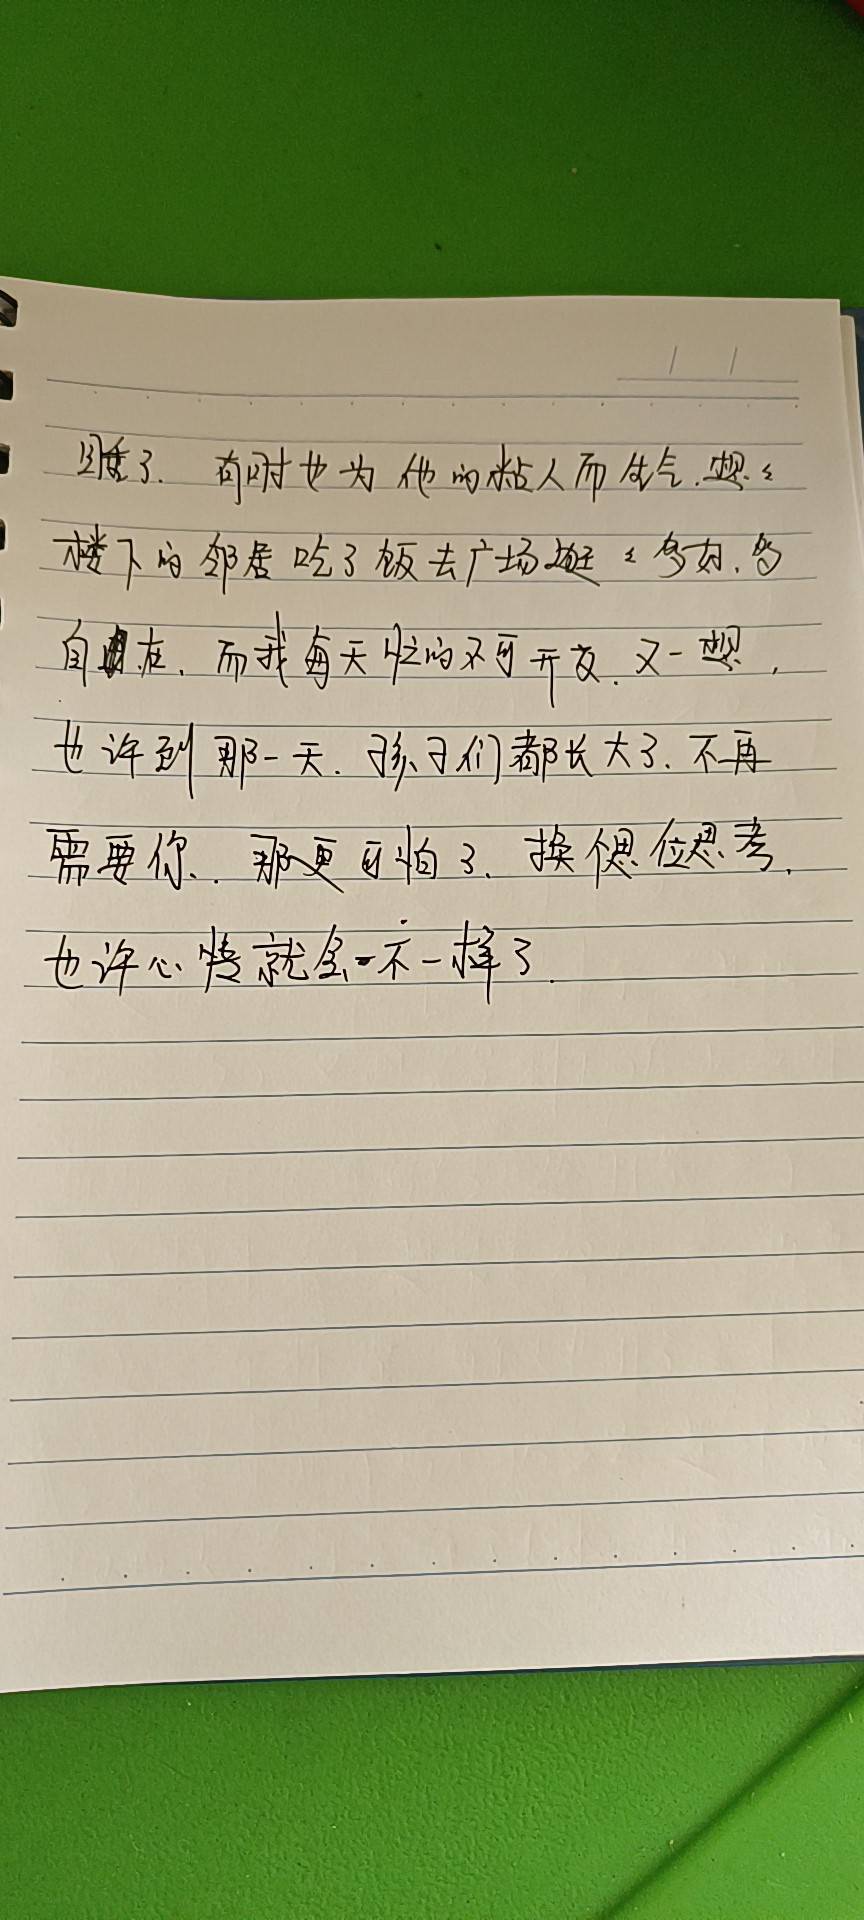 睡了. 有时也为他的粘人而生气.想々
楼下的邻居吃了饭去广场逛々多好.多
自在.而我每天忙的不可开交.又一想,
也许到那一天.孩子们都长大了.不再
需要你.那更可怕了.换位思考.
也许心情就会不一样了.